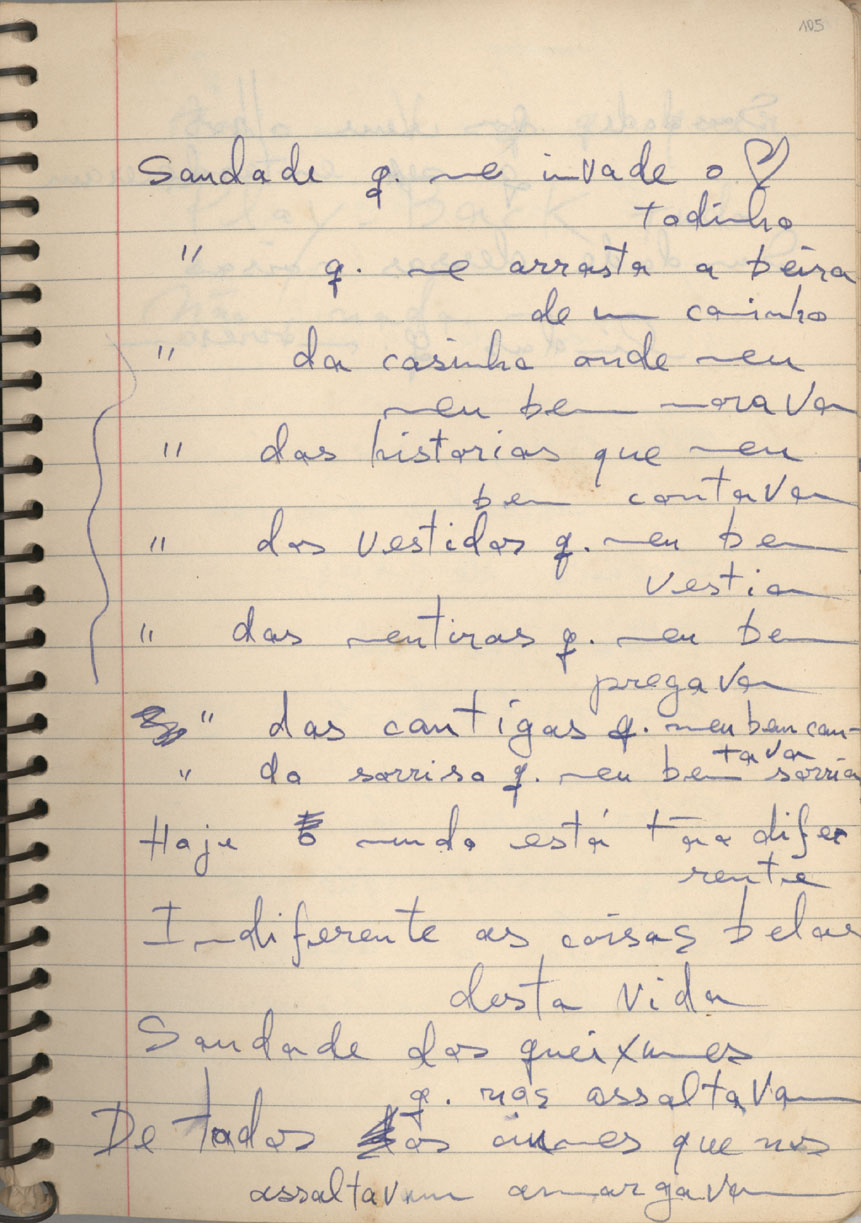 105
Saudade q. me invade o ♡
todinho
" q. me arrasta a beira
de um caminho
" da casinha onde meu
meu bem morava
" das historias que meu
bem contava
" dos vestidos q. meu bem
vestia
" das mentiras q. meu bem
pregava
" das cantigas q. meu bem can-
tava
" do sorriso q. meu bem sorria
Hoje o mundo está tão dife
rente
Indiferente as coisas belas
desta vida
Saudade dos queixumes
q. nos assaltavam
De todos os ciumes que nos
assaltavam amargava